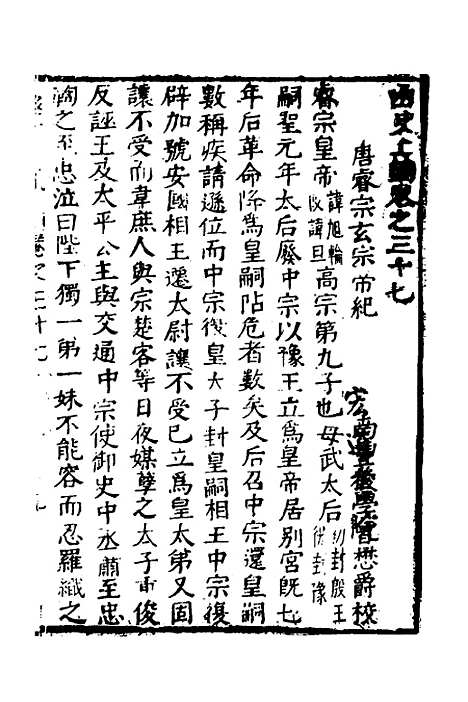 函史上編卷之三十七
唐睿宗玄宗帝紀
南豐 校
睿宗皇帝諱旭輪改諱旦高宗第九子也母武太后初封殷王徙封豫
嗣聖元年太后廢中宗以豫王立爲皇帝居別宮旣七
年后革命降爲皇嗣阽危者數矣及后召中宗還皇嗣
數稱疾請遜位而中宗復皇太子封皇嗣相王中宗復
辟加號安國相王遷太尉讓不受已立爲皇太弟又固
讓不受而韋庶人與宗楚客等日夜媒孽之太子重俊
反誣王及太平公主與交通中宗使御史中丞蕭至忠
鞫之至忠泣曰陛下獨一弟一妹不能容而忍羅織之